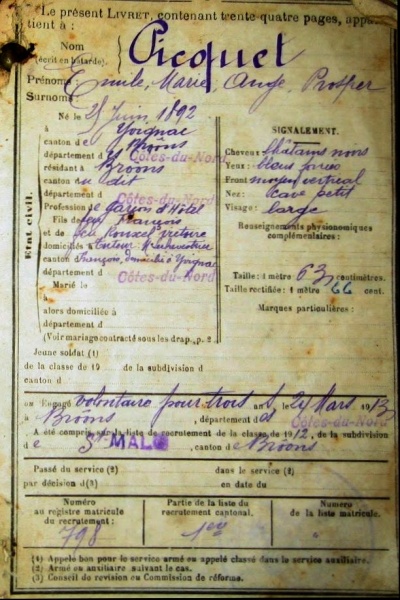 Le présent LIVRET, contenant trente-quatre pages, appar-
tient à :
Nom
(écrit en bâtarde).
Picquet
Prénoms Emile, Marie, Ange, Prosper
Surnoms
Né le 25 Juin 1892
à Yvignac
canton de Broons
département d Côtes-du-Nord
résidant à Broons
canton du dit
département d Côtes-du-Nord
Profession de garçon d'Hôtel
Fils de feu François
et de feu Rouxel Victoire
domiciliés à
canton François, domicilié à Yvignac
département d Côtes-du-Nord
Marié le
à
alors domiciliée à
département d
(Voir mariage contracté sous les drap., p. 2.
Etat civil.
SIGNALEMENT.
Cheveux châtains noirs
Yeux : bleus
Front moyen vertical
Nez : cave petit
Visage : large
Renseignements physionomiques
complémentaires :
Taille : 1 mètre 63 centimètres.
Taille rectifiée : 1 mètre 66 cent.
Marques particulières :
Jeune soldat (1)
de la classe de 19 de la subdivision d
canton d
ou Engagé volontaire pour trois ans, le 21 Mars 1913
à Broons, département d Côtes-du-Nord
A été compris sur la liste de recrutement de la classe de 1912, de la subdivision
de St-MALO, canton de Broons
Passé du service (2) dans le service (2)
par décision d(3) en date du
Numéro
au registre matricule
du recrutement :
798
Partie de la liste du
recrutement cantonal.
1ere
Numéro
de la liste matricule.
(1) Appelé bon pour le service armé ou appelé classé dans le service auxiliaire.
(2) Armé ou auxiliaire suivant le cas.
(3) Conseil de revision ou Commission de réforme.